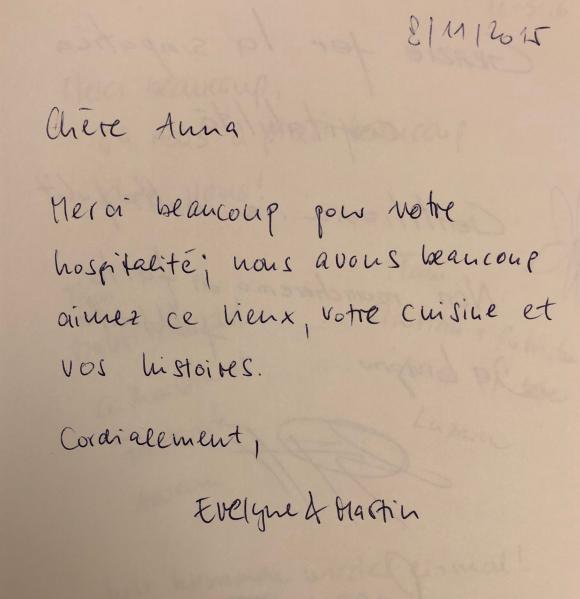 8/11/2015
Chère Anna
Merci beaucoup pour votre
hospitalité; nous avons beaucoup
aimez ce lieux, votre cuisine et
vos histoires.
Cordialement,
Evelyne & Martin